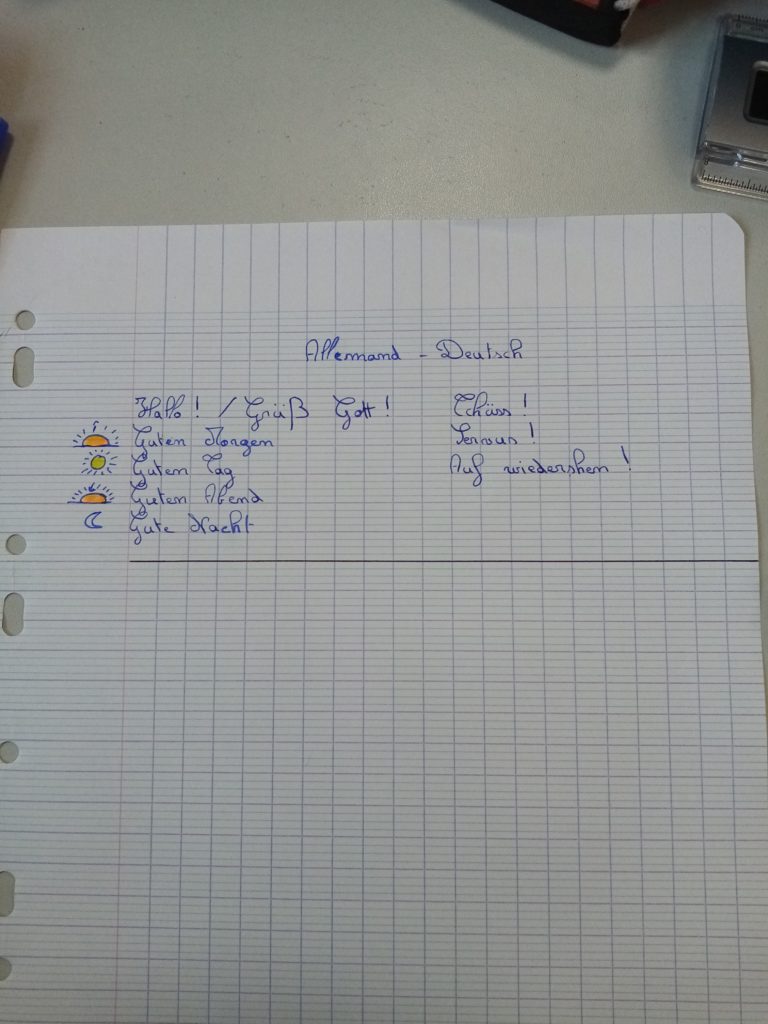 Allemand - Deutsch
Hallo ! / Grüß Gott !
Guten Morgen
Guten Tag
Guten Abend
Gute Nacht
Chüss !
Servus !
Auf wiedershen !